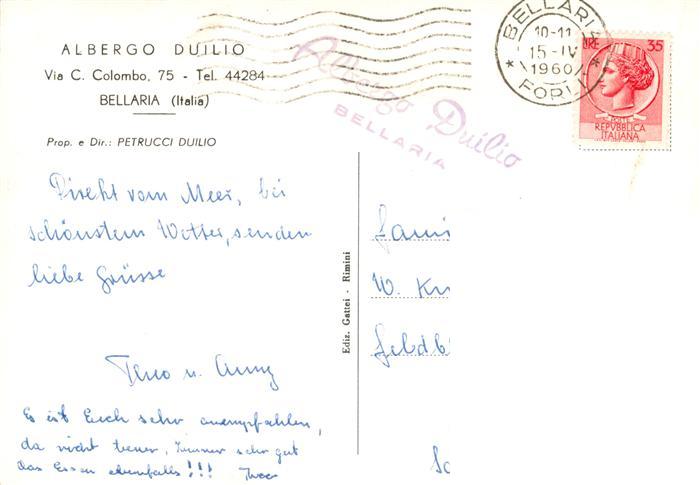 ALBERGO DUILIO
Via C. Colombo, 75 - Tel. 44284
BELLARIA (Italia)
Prop. e Dir.: PETRUCCI DUILIO
Albergo Duilio
BELLARIA
BELLARIA
10-11
15-IV
1960
* FORLI *
LIRE 35
POSTE
REPVBBLICA
ITALIANA
Direkt vom Meer, bei
schönstem Wetter, senden
liebe Grüsse
u.
Es ist Euch sehr
da nicht teuer, Zimmer sehr gut
das Essen ebenfalls!!!
Ediz. Gattei - Rimini
W. Kn